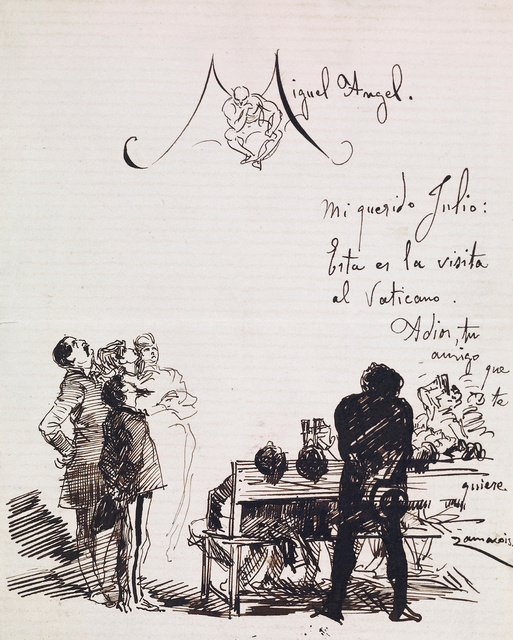 Miguel Angel.
Mi querido Julio:
Esta es la visita
al Vaticano.
Adios, tu
amigo
que
te
quiere
Zamacois.